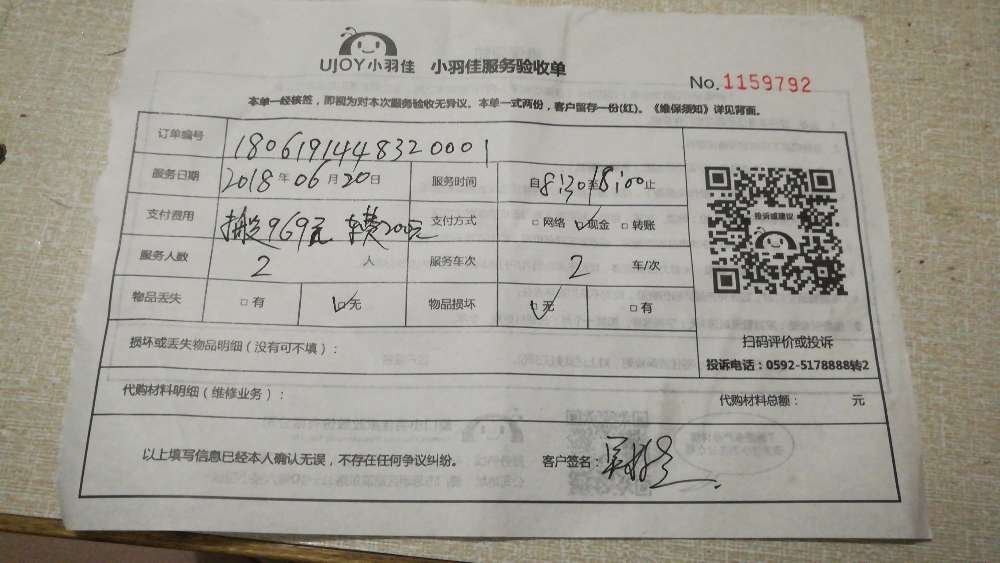 UJOY小羽佳 小羽佳服务验收单
No.1159792
本单一经核签，即视为对本次服务验收无异议。本单一式两份，客户留存一份(红)。《维保须知》详见背面。
订单编号 1806191448320001
服务日期 2018年06月20日 服务时间 自8:30至18:00止
支付费用 969元 车费200元 支付方式 □网络 □现金 □转账
服务人数 2人 服务车次 2车/次
物品丢失 □有 □无 物品损坏 □无 □有
投诉或建议
扫码评价或投诉
投诉电话：0592-5178888转2
损坏或丢失物品明细（没有可不填）：
代购材料明细（维修业务）： 代购材料总额： 元
以上填写信息已经本人确认无误，不存在任何争议纠纷。 客户签名：